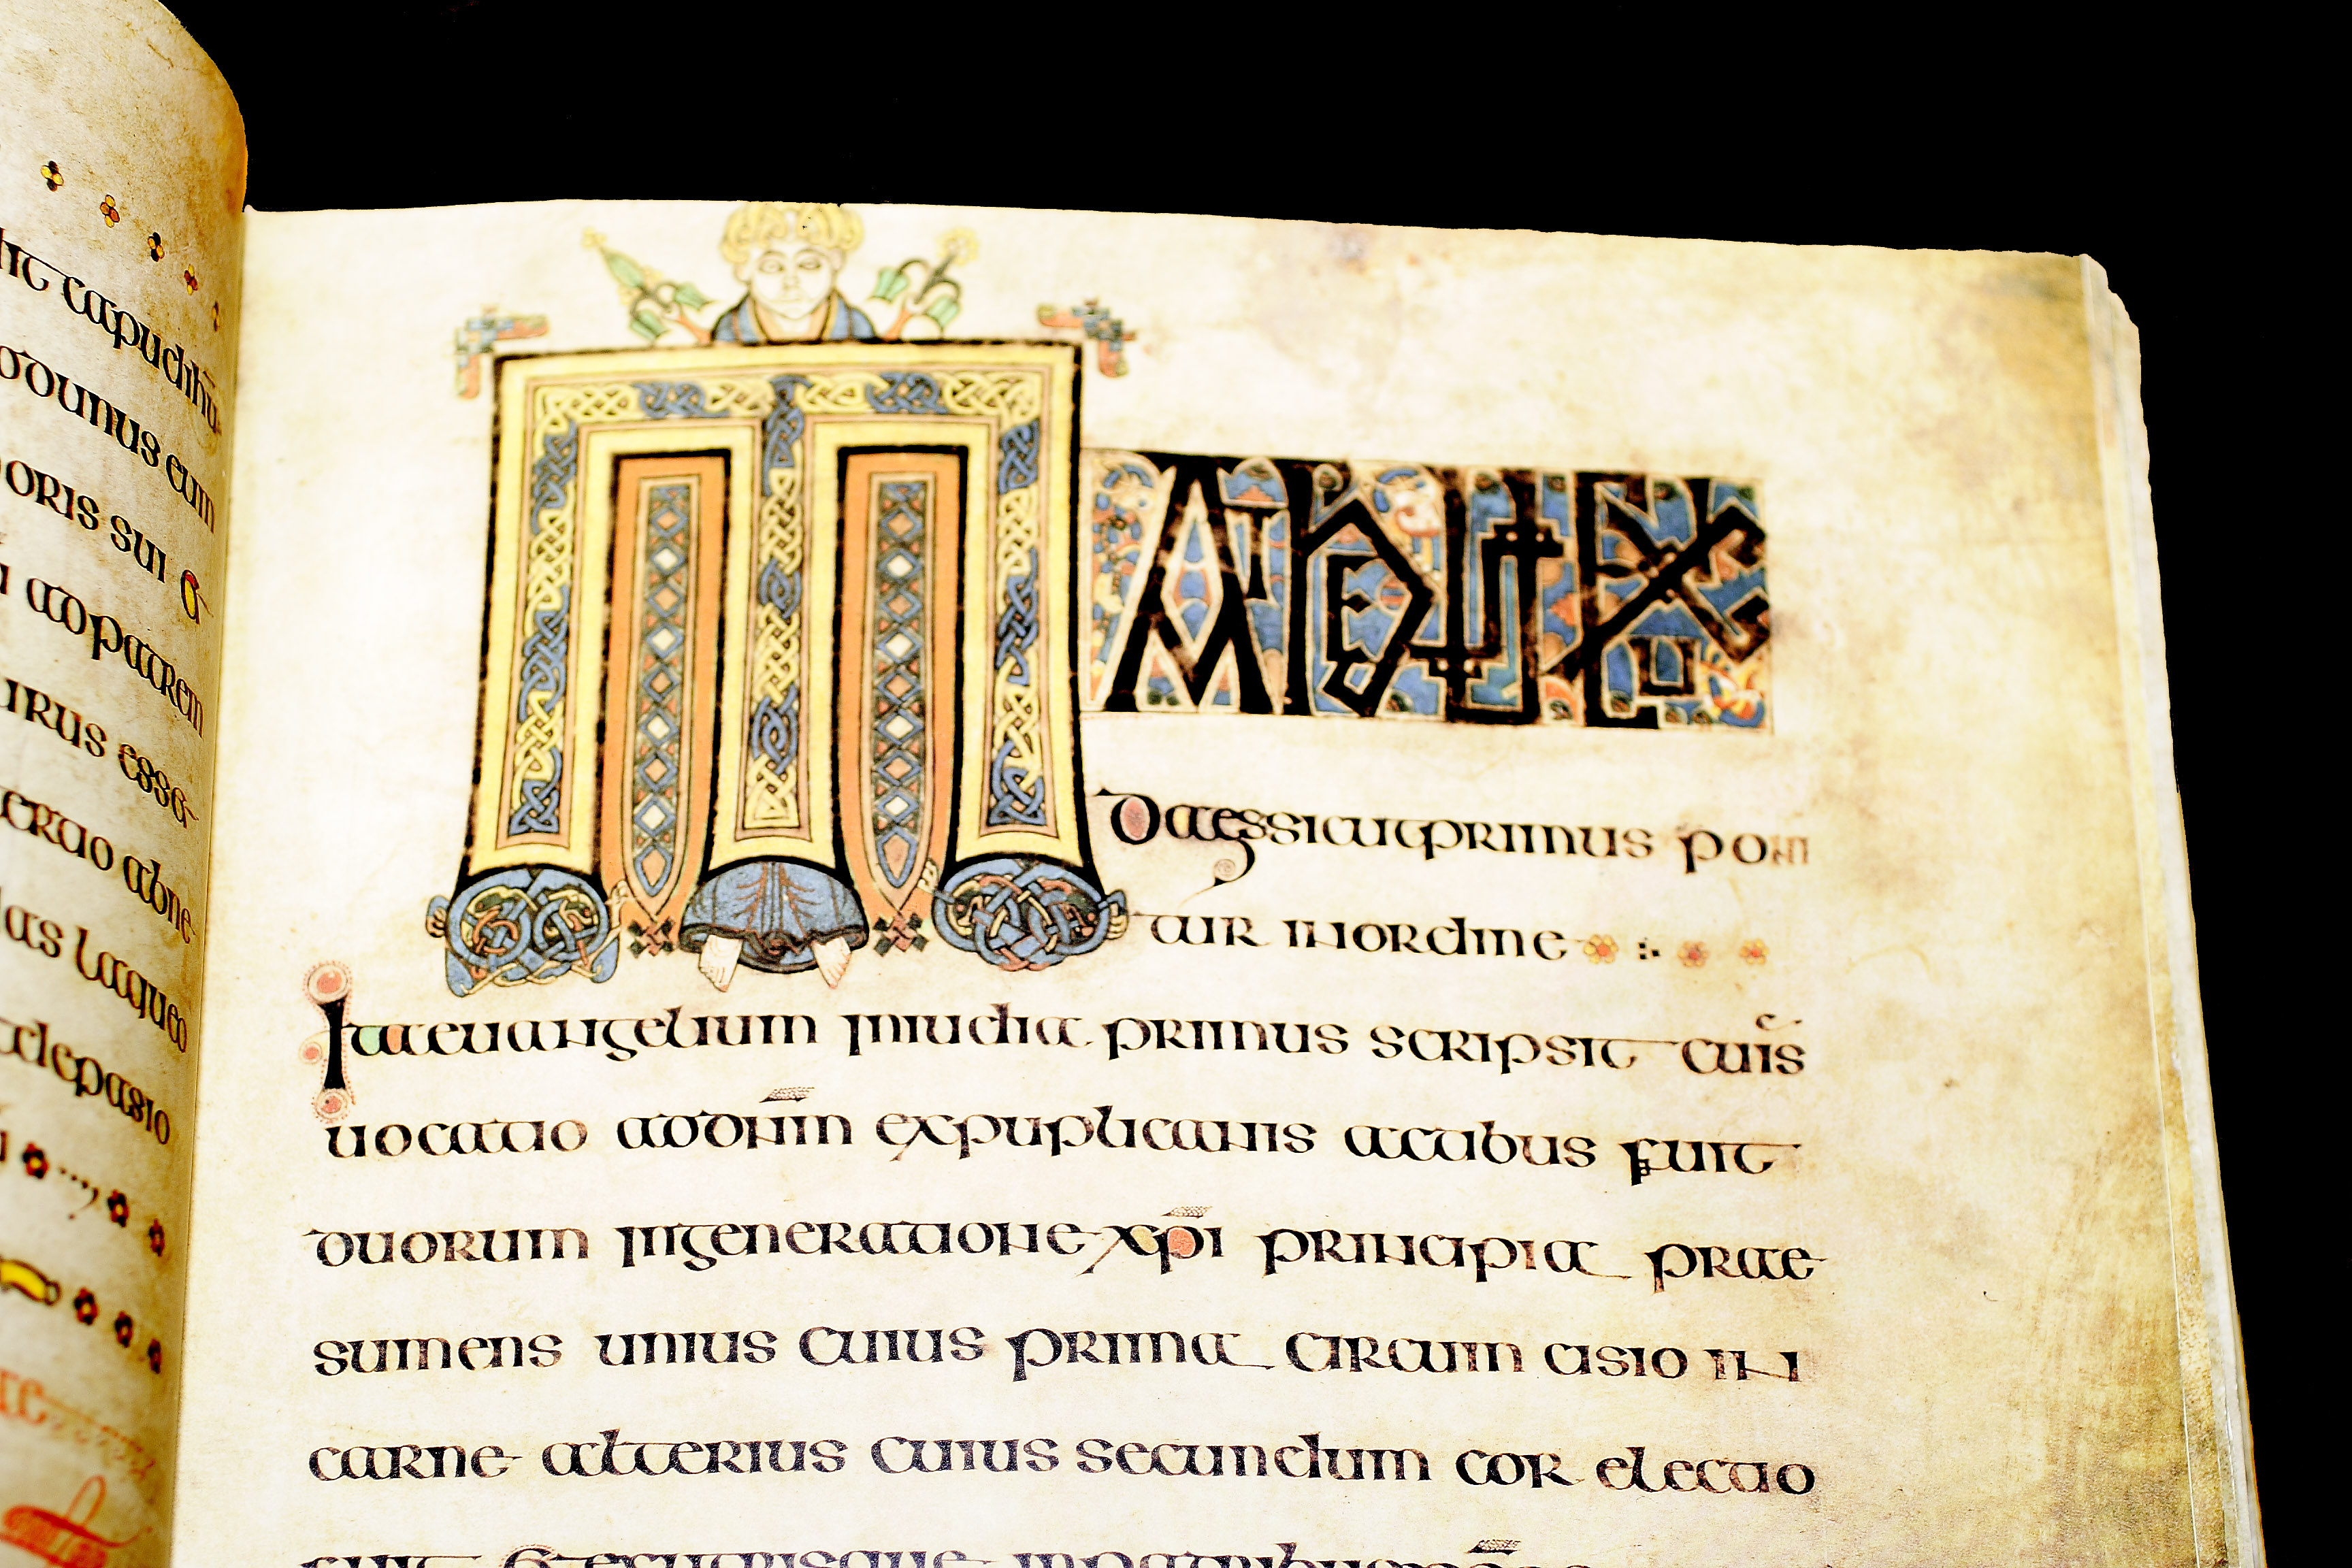 capud ihu
eum
oris sui et
ad patrem
esset
ertio abne
laqueo
MATHEUS EX IU
daessicut primus poni
tur in ordine
Ita euangelium in iudia primus scripsit cuis
uocatio ad dnm ex puplicanis actibus fuit
duorum in generatione xpi principia prae
sumens unius cuius prima circum cisio in
carne alterius cuius secundum cor electio